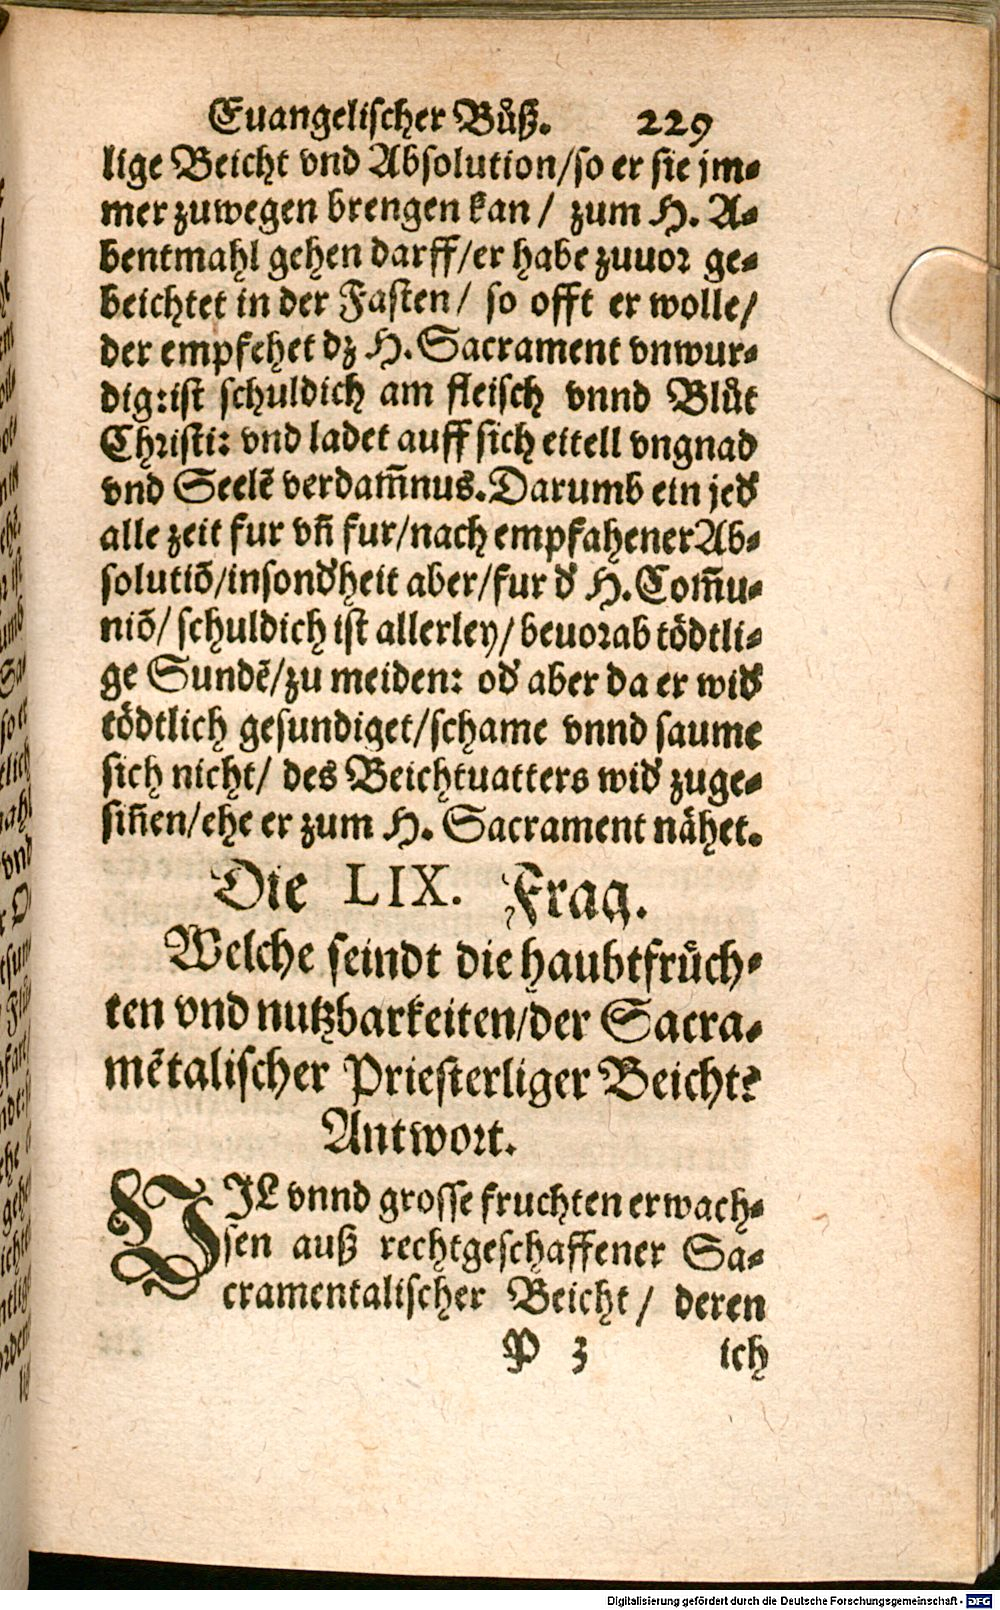 Euangelischer Bůß. 229
lige Beicht vnd Absolution/so er sie jm-
mer zuwegen brengen kan/ zum H. A-
bentmahl gehen darff/er habe zuuor ge-
beichtet in der Fasten/ so offt er wolle/
der empfehet dz H. Sacrament vnwur-
dig:ist schuldich am fleisch vnnd Blůt
Christi: vnd ladet auff sich eitell vngnad
vnd Seelẽ verdam̃nus. Darumb ein jed
alle zeit fur vñ fur/nach empfahener Ab-
solutiõ/insondheit aber/fur d H. Com̃u-
niõ/ schuldich ist allerley/ beuorab tödtli-
ge Sundẽ/zu meiden: od aber da er wid
tödtlich gesundiget/schame vnnd saume
sich nicht/ des Beichtuatters wid zuge-
siñen/ehe er zum H. Sacrament nähet.
Die LIX. Frag.
Welche seindt die haubtfrüch-
ten vnd nutzbarkeiten/der Sacra-
mẽtalischer Priesterliger Beicht?
Antwort.
VJL vnnd grosse fruchten erwach-
sen auß rechtgeschaffener Sa-
cramentalischer Beicht/ deren
P 3 ich
Digitalisierung gefördert durch die Deutsche Forschungsgemeinschaft - DFG